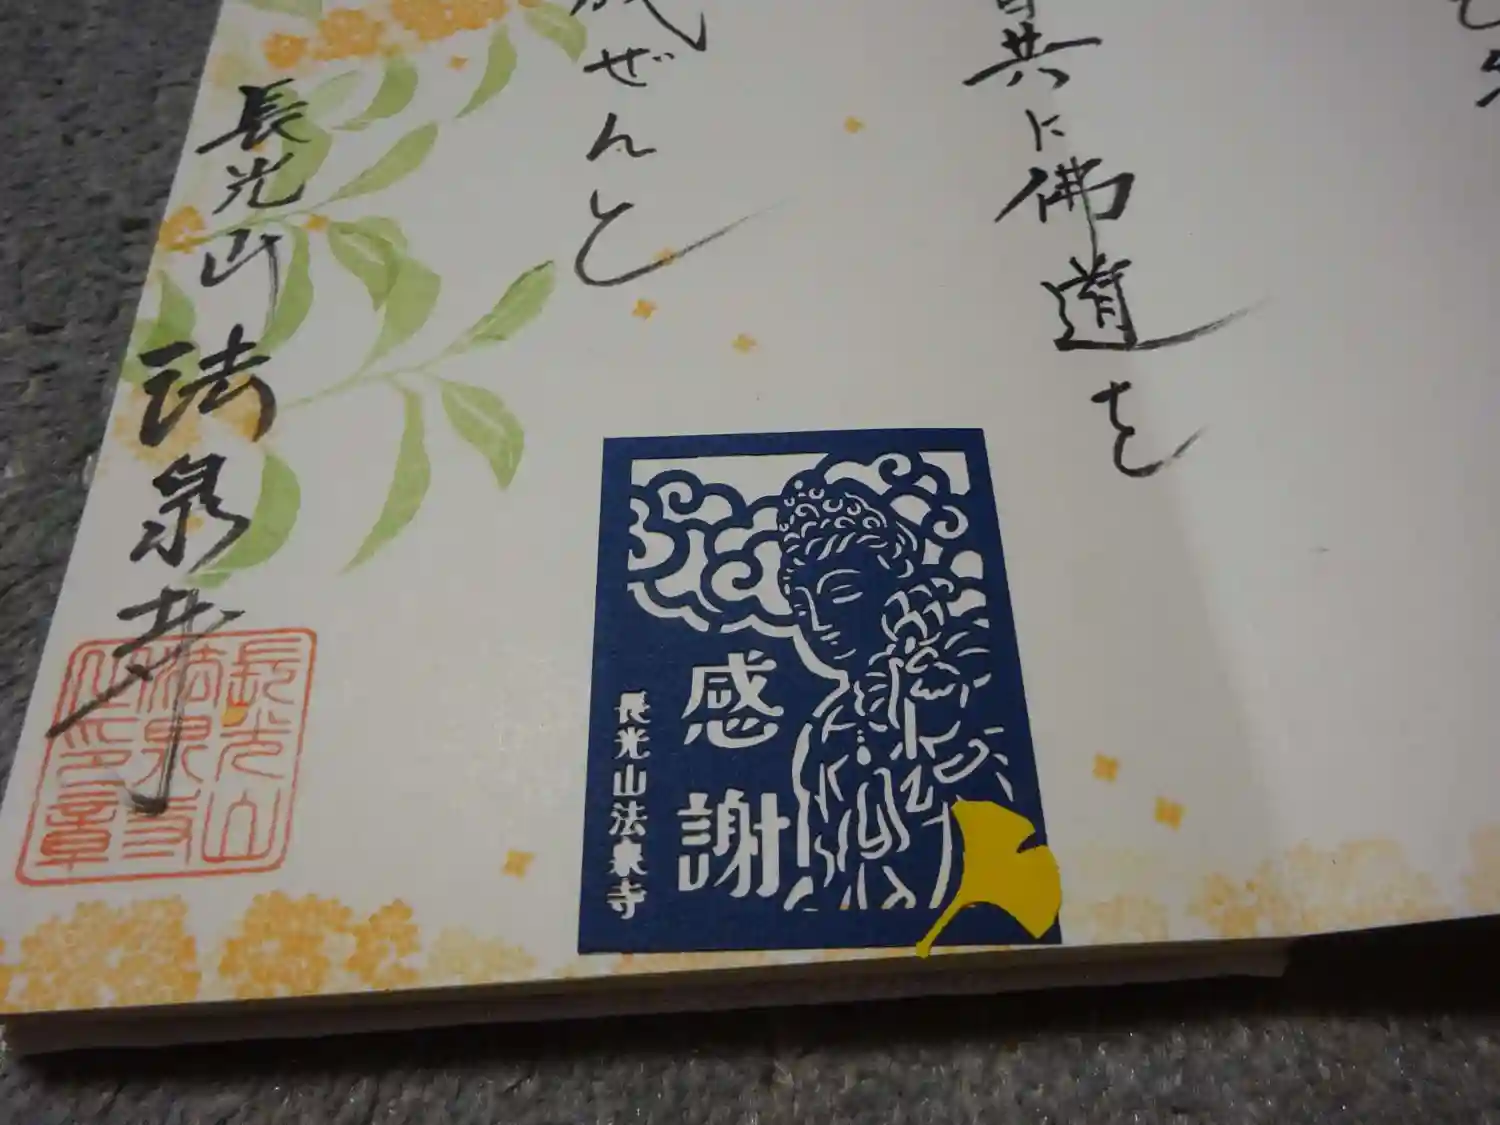 共に佛道を
成ぜんと
長光山 法泉寺
長光山
法泉寺
感謝
長光山法泉寺